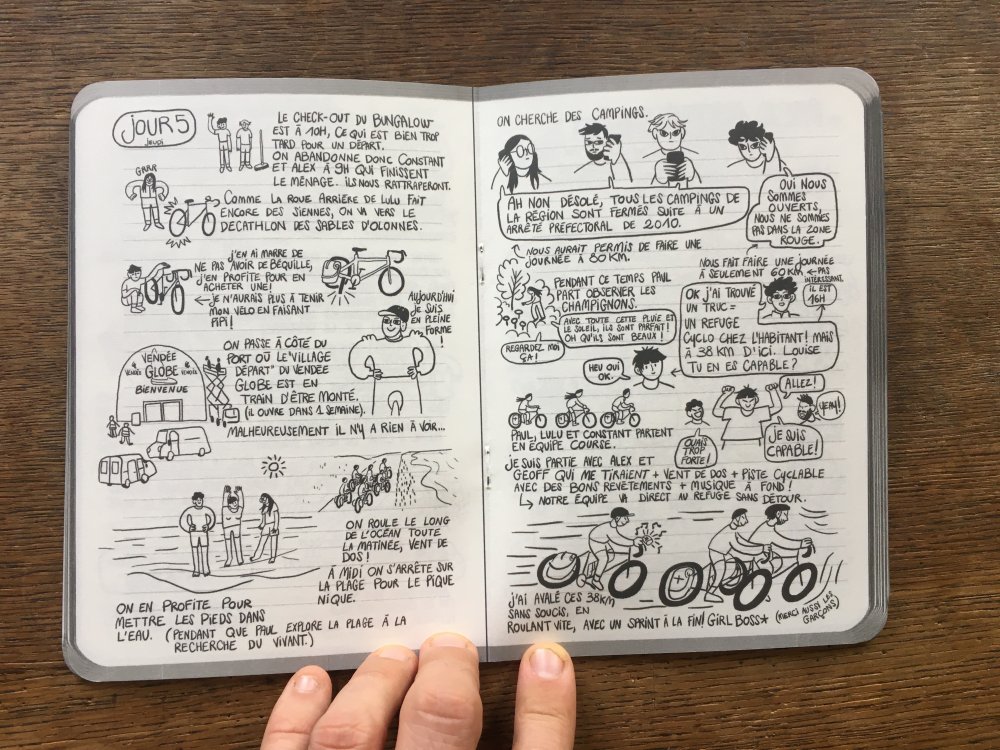 JOUR 5
JEUDI
LE CHECK-OUT DU BUNGALOW
EST À 10H, CE QUI EST BIEN TROP
TARD POUR UN DÉPART.
ON ABANDONNE DONC CONSTANT
ET ALEX À 9H QUI FINISSENT
LE MÉNAGE. ILS NOUS RATTRAPERONT.
GRRR
COMME LA ROUE ARRIÈRE DE LULU FAIT
ENCORE DES SIENNES, ON VA VERS LE
DECATHLON DES SABLES D'OLONNES.
J'EN AI MARRE DE
NE PAS AVOIR DE BÉQUILLE,
J'EN PROFITE POUR EN
ACHETER UNE!
← JE N'AURAIS PLUS À TENIR
MON VÉLO EN FAISANT
PIPI!
AUJOURD'HUI
JE SUIS
EN PLEINE
FORME
!
VENDÉE
GLOBE
BIENVENUE
VENDÉE
VENDÉE
ON PASSE À CÔTÉ DU
PORT OÙ LE "VILLAGE
DÉPART" DU VENDEE
GLOBE EST EN
TRAIN D'ÊTRE MONTÉ.
(IL OUVRE DANS 1 SEMAINE).
MALHEUREUSEMENT IL N'Y A RIEN À VOIR...
ON ROULE LE LONG
DE L'OCÉAN TOUTE
LA MATINÉE, VENT DE
DOS!
À MIDI ON S'ARRÊTE SUR
LA PLAGE POUR LE PIQUE
NIQUE.
ON EN PROFITE POUR
METTRE LES PIEDS DANS
L'EAU. (PENDANT QUE PAUL EXPLORE LA PLAGE À LA
RECHERCHE DU VIVANT.)
ON CHERCHE DES CAMPINGS.
AH NON DÉSOLÉ, TOUS LES CAMPINGS DE
LA RÉGION SONT FERMÉS SUITE À UN
ARRÊTÉ PRÉFECTORAL DE 2010.
OUI NOUS
SOMMES
OUVERTS,
NOUS NE SOMMES
PAS DANS LA ZONE
ROUGE.
NOUS AURAIT PERMIS DE FAIRE UNE
JOURNÉE À 80KM.
NOUS FAIT FAIRE UNE JOURNÉE
À SEULEMENT 60KM ← PAS
INTÉRESSANT,
IL EST
16H
PENDANT CE TEMPS PAUL
PART OBSERVER LES
CHAMPIGNONS.
AVEC TOUTE CETTE PLUIE ET
LE SOLEIL, ILS SONT PARFAIT!
OH QU'ILS SONT BEAUX!
REGARDEZ MOI
ÇA!
OK J'AI TROUVÉ
UN TRUC =
UN REFUGE
CYCLO CHEZ L'HABITANT! MAIS
À 38 KM D'ICI. LOUISE
TU EN ES CAPABLE?
HEU OUI
OK.
ALLEZ!
YEAH!
OUAIS
TROP
FORTE!
JE SUIS
CAPABLE!
PAUL, LULU ET CONSTANT PARTENT
EN ÉQUIPE COURSE.
JE SUIS PARTIE AVEC ALEX ET
GEOFF QUI ME TIRAIENT + VENT DE DOS + PISTE CYCLABLE
AVEC DES BONS REVÊTEMENTS + MUSIQUE À FOND!
↳ NOTRE ÉQUIPE VA DIRECT AU REFUGE SANS DÉTOUR.
J'AI AVALÉ CES 38KM
SANS SOUCIS, EN
ROULANT VITE, AVEC UN SPRINT À LA FIN! GIRL BOSS★ (MERCI AUSSI LES
GARÇONS)